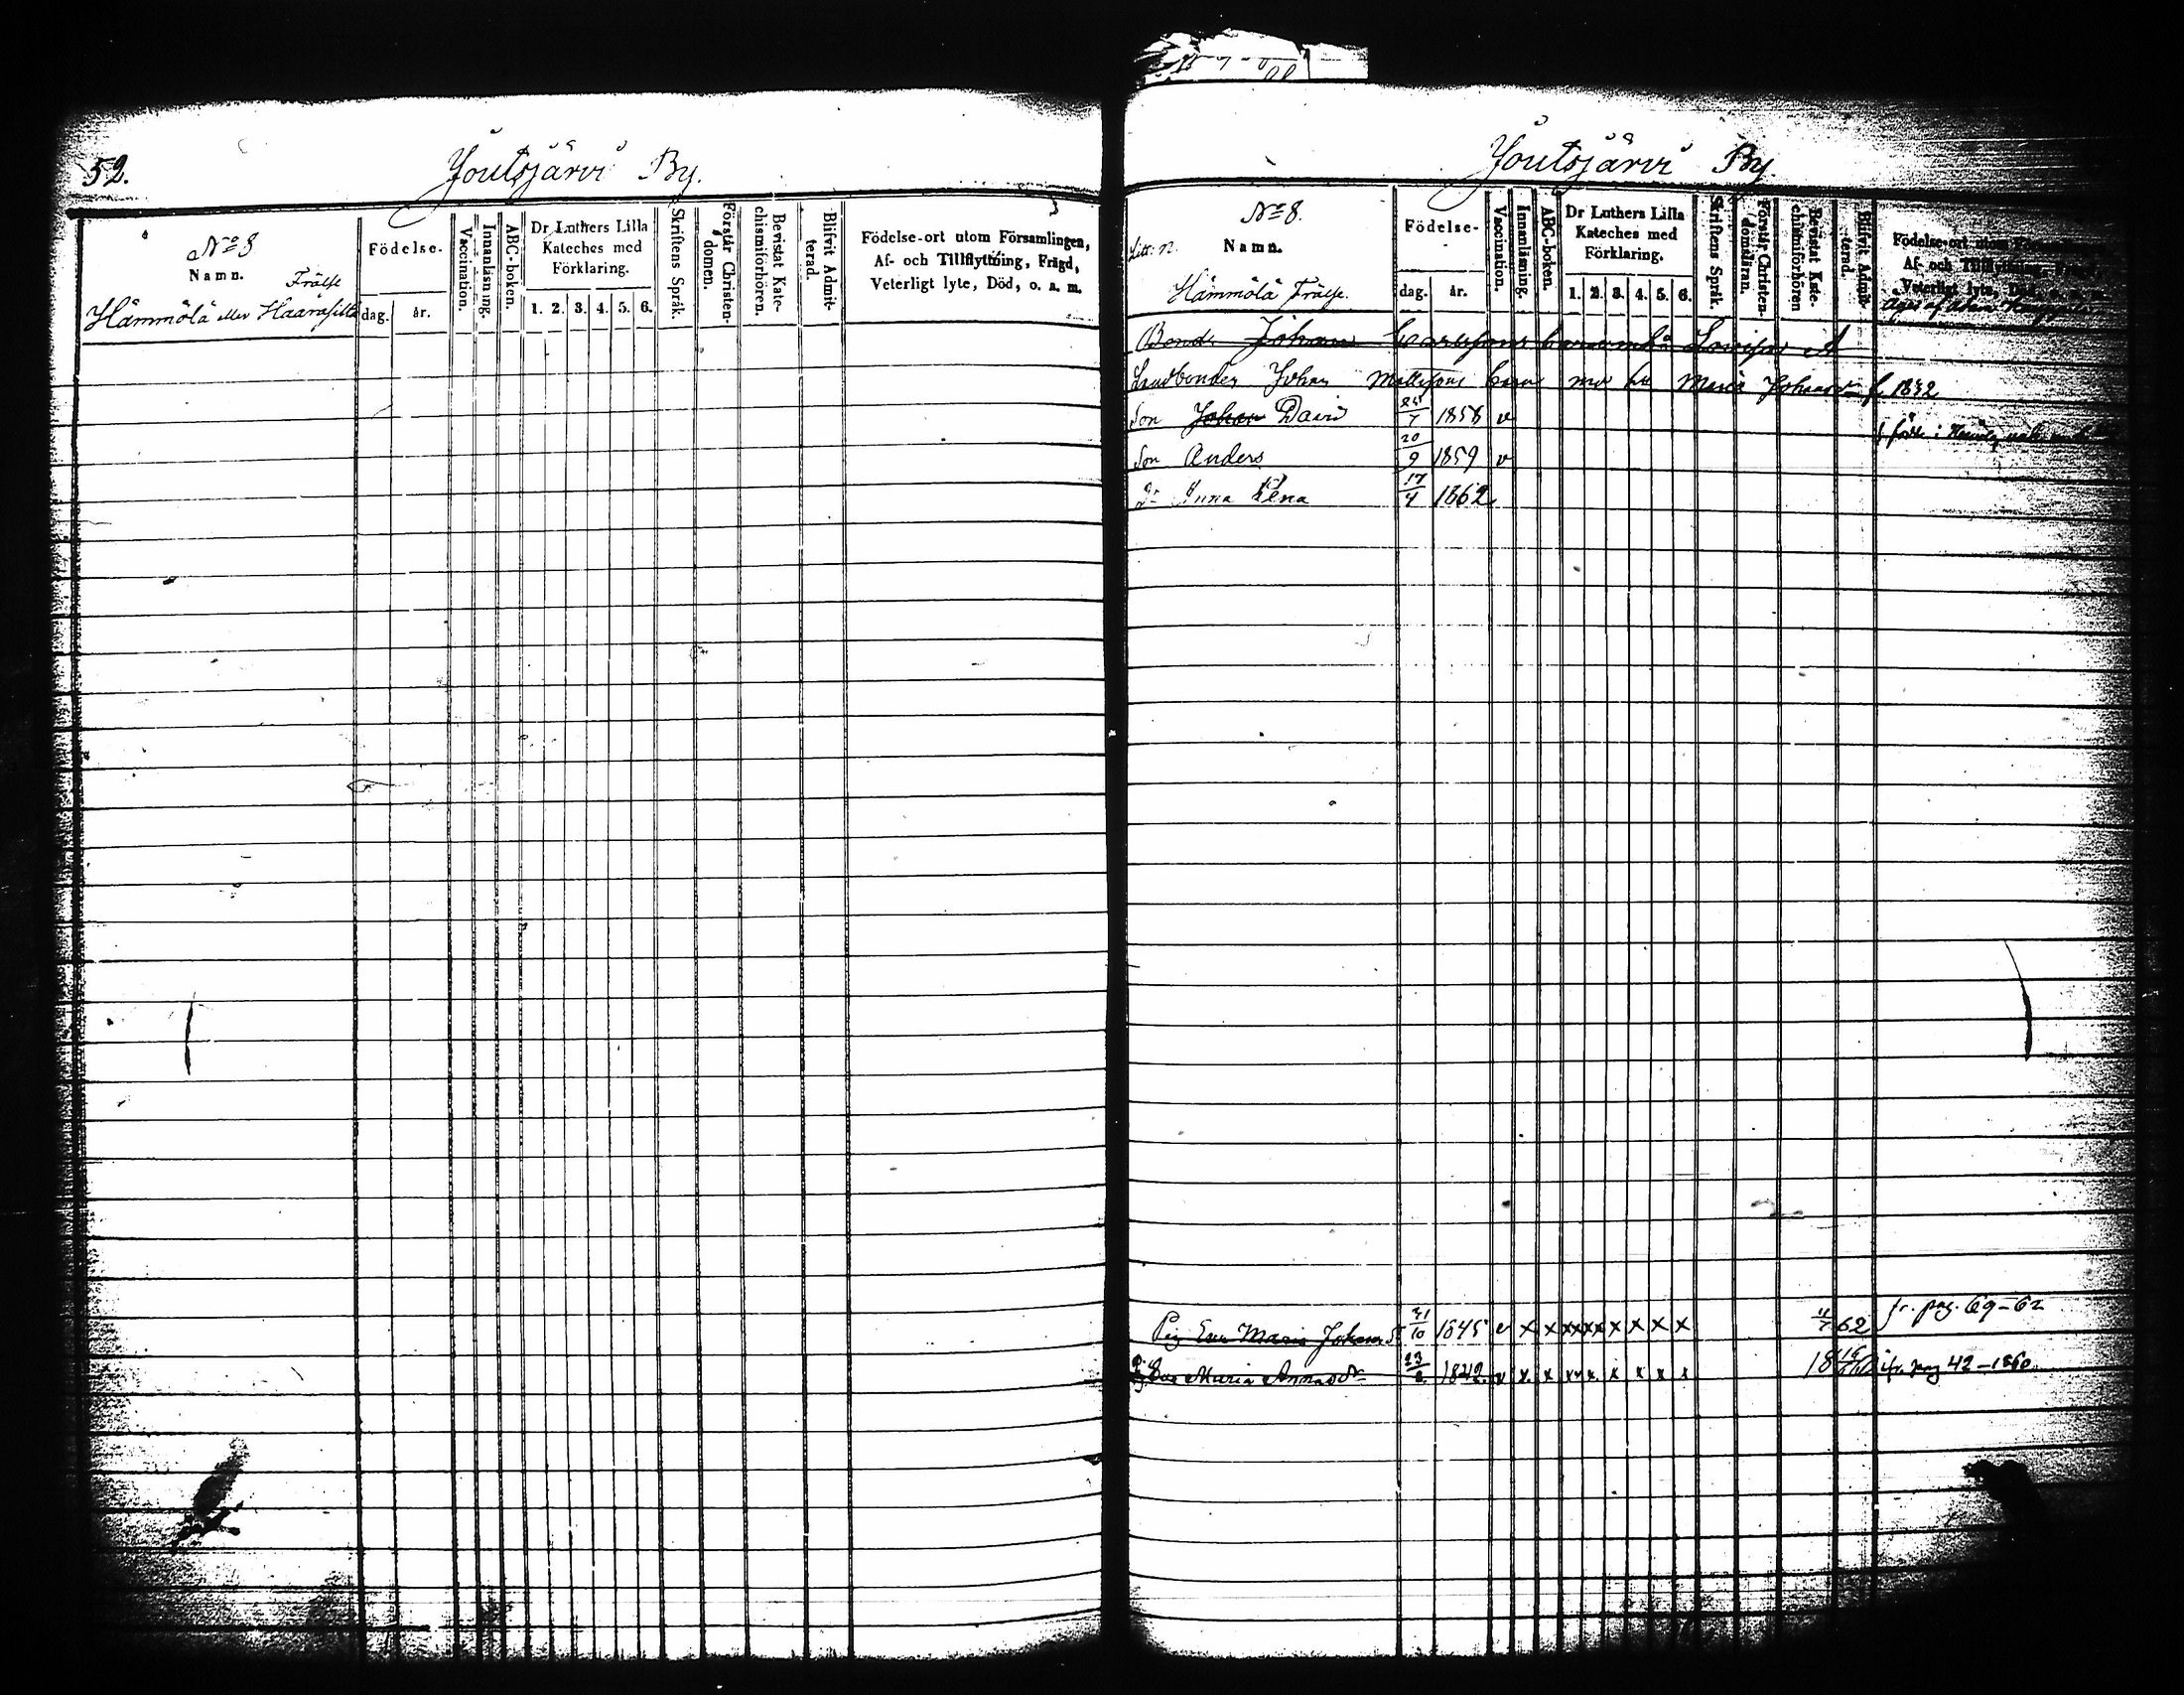 52.
Joutsjärvi By.
No 8
Namn.
Frälse
Hämmölä eller Haaransilta
Födelse-
dag.
år.
Vaccination.
Innanläsning.
ABC-boken.
Dr Luthers Lilla
Kateches med
Förklaring.
1. 2. 3. 4. 5. 6.
Skriftens Språk.
Förstår Christen-
domen.
Bevistat Kate-
chismiförhören.
Blifvit Admit-
terad.
Födelse-ort utom Församlingen,
Af- och Tillflyttning, Frägd,
Veterligt lyte, Död, o. a. m.
Joutsjärvi By.
No 8.
Litt. N.
Namn.
Hämmölä Frälse.
Födelse-
dag.
år.
Vaccination.
Innanläsning.
ABC-boken.
Dr Luthers Lilla
Kateches med
Förklaring.
1. 2. 3. 4. 5. 6.
Skriftens Språk.
Förstår Christen-
domsläran.
Bevistat Kate-
chismiförhören
Blifvit Admit-
terad.
Födelse-ort utom
Af- och Tillflyttning,
Veterligt lyte, Död, o. a. m.
Bond. Johan Lovisa
Landbonden Johan Mattssons barn med hu Maria Johansdr f. 1832
Son Johan David 1858 v
Son Anders 20/9 1859 v
Dr Anna Lena 17/4 1862
Pig Eva Maria Johans 31/10 1845 v x x x x x x x x x x 62 fr. pag. 69-62
Pig Eva Maria Annasdr 23/2 1842 v x x x x x x x x x pag 42-1860